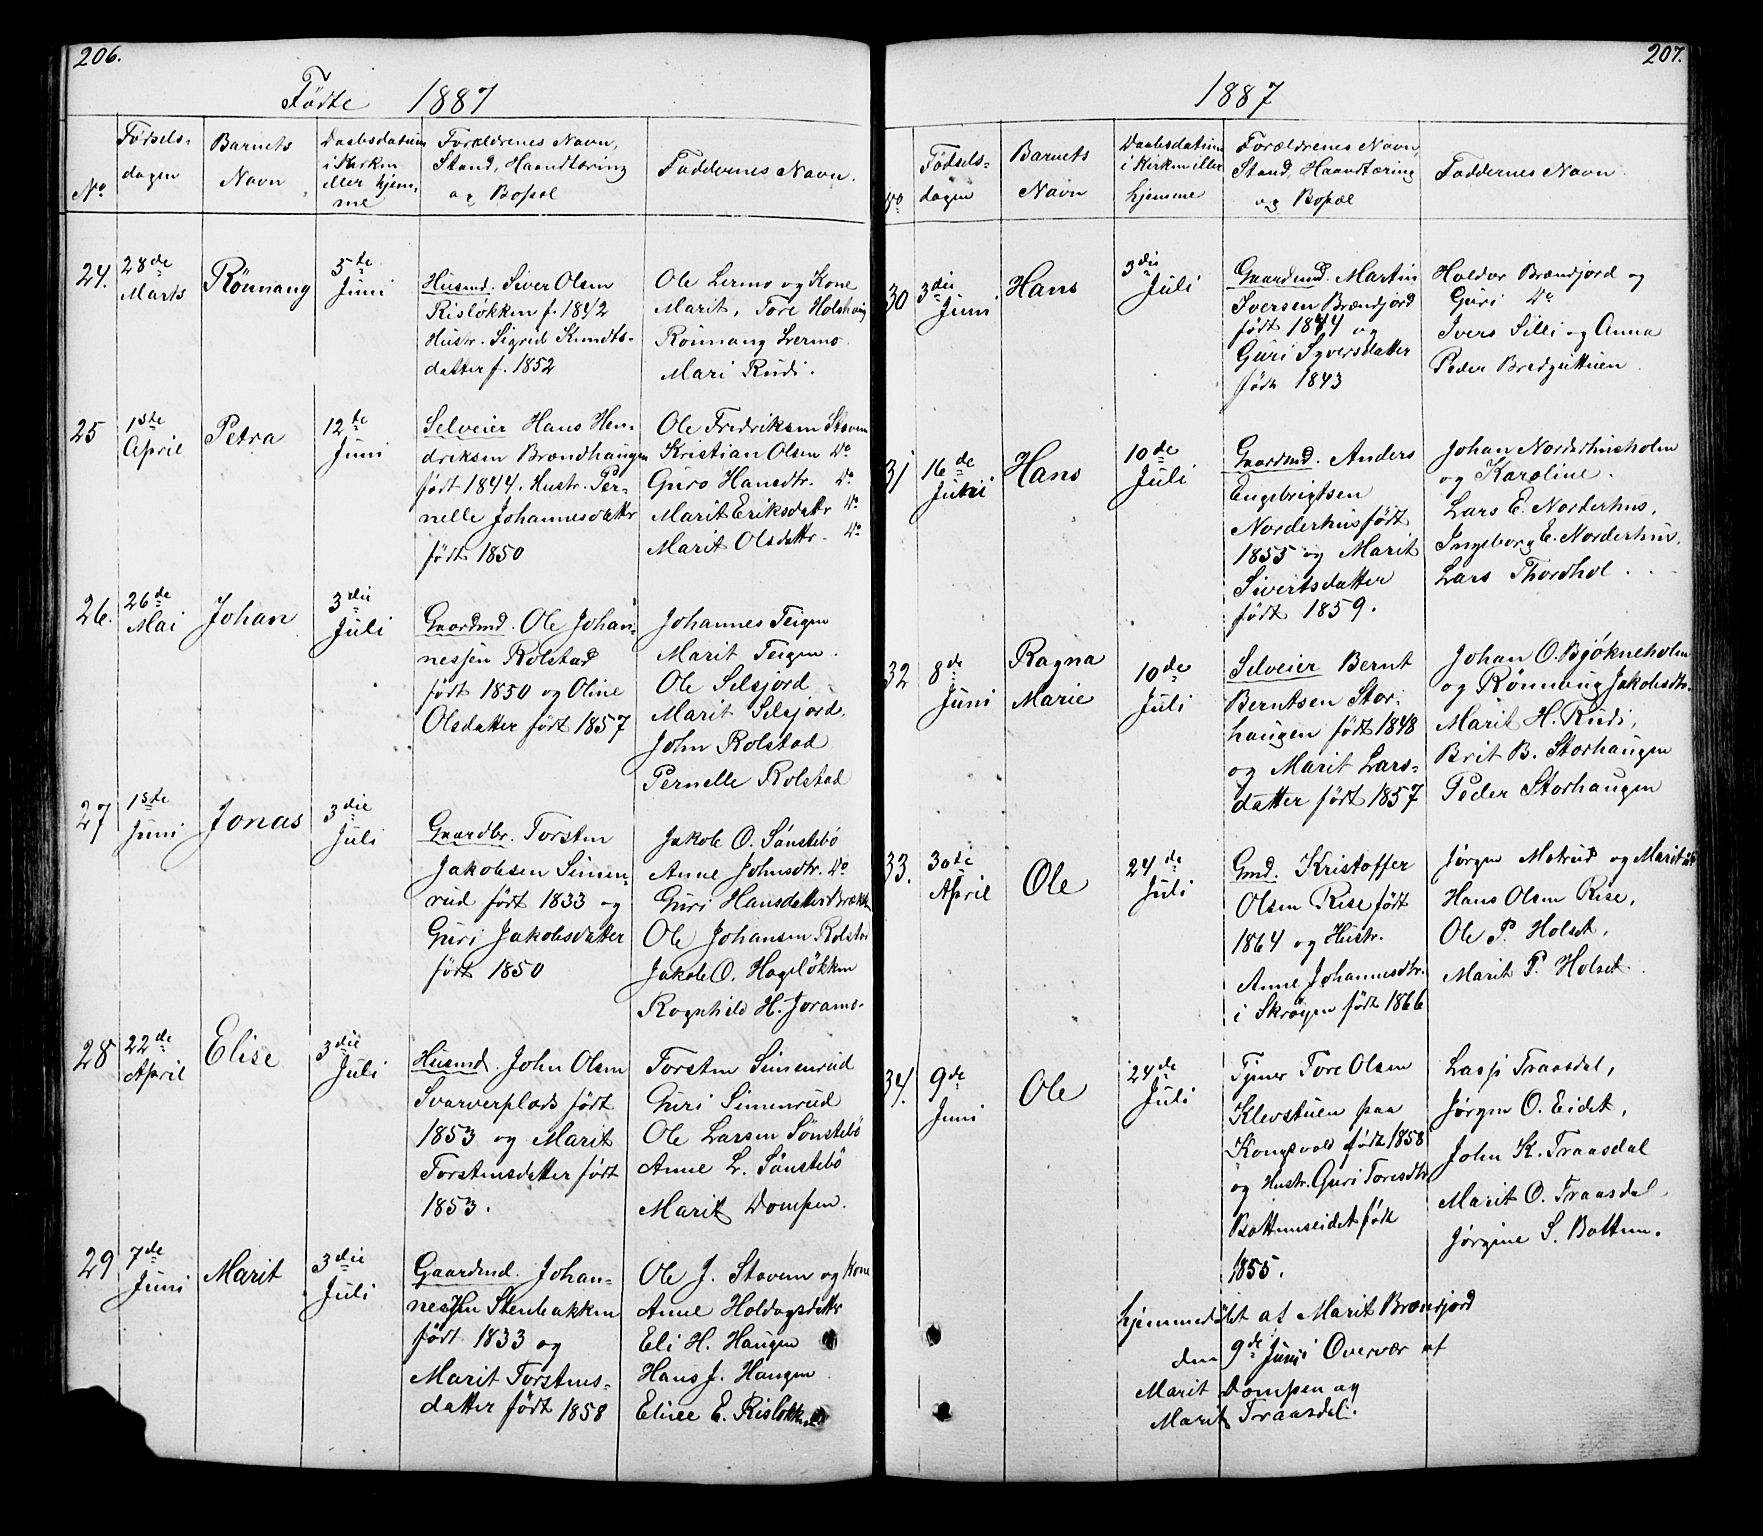 206.
Fødte 1887
No
Fødsels-
dagen
Barnets
Navn
Daabsdatum
i Kirken
eller hjem-
me
Forældrenes Navn,
Stand, Haandtæring
og Bopæl
Faddernes Navn.
24.
28de
Marts
Rönnaug
5te
Juni
Husmd. Siver Olsen
Risløkken f. 1842
Hustr. Sigrid Knudts-
datter f. 1852
Ole Lermo og Kone
Marit, Tore Holshaug
Rönnaug Lermo
Mari Rudi.
25
1ste
April
Petra
12te
Juni
Selveier Hans Hen-
driksen Brændhaugen
født 1844. Hustr. Per-
nelle Johannesdattr
født 1850
Ole Fredriksen Stavem
Kristian Olsen Do
Guro Hansdtr. Do
Marit Eriksdattr Do
Marit Olsdattr. Do
26.
26de
Mai
Johan
3die
Juli
Gaardmd. Ole Johan-
nessen Rolstad
født 1850 og Oline
Olsdatter født 1857
Johannes Teigen
Marit Teigen.
Ole Selsjord
Marit Selsjord.
John Rolstad
Pernelle Rolstad
27
1ste
Juni
Jonas
3die
Juli
Gaardbr. Torsten
Jakobsen Simen-
rud født 1833 og
Guri Jakobsdatter
født 1850
Jakob O. Sönstebö
Anne Johnsdtr. Do
Guri Hansdatter Brække
Ole Johansen Rolstad
Jakob O. Hageløkken
Rognhild H. Jorams-
28
22de
April
Elise
3die
Juli
Husmd. John Olsen
Svarverplads født
1853 og Marit
Torstensdatter født
1853.
Torsten Simenrud
Guri Simenrud
Ole Larsen Sönstebö
Anne L. Sönstebö
Marit Dompen.
29
7de
Juni
Marit
3die
Juli
Gaardmd. Johan-
nes Stenbakken
født 1833 og
Marit Torstens-
datter født 1858
Ole J. Stavem og Kone
Anne Holdogsdattr
Eli H. Haugen
Hans J. Haugen
Elisee E. Risløkken
207.
1887
No
Fødsels-
dagen
Barnets
Navn
Daabsdatum
i Kirken eller
hjemme
Forældrenes Navn,
Stand, Haandtæring
og Bopæl
Faddernes Navn.
30
3die
Juni
Hans
3die
Juli
Gaardmd. Martin
Iversen Brændjord
født 1844 og
Guri Syversdatter
født 1843
Holdor Brændjord og
Guri Do
Ivers Silli og Anna
Peder Bredguttuen
31
16de
Juni
Hans
10de
Juli
Gaardmd. Anders
Engebrigtsen
Norderhus født
1855 og Marit
Sivertsdatter
født 1859.
Johan Norderhusholm
og Karoline.
Lars E. Norderhus,
Ingeborg E. Norderhus.
Lars Thordhol.
32
8de
Juni
Ragna
Marie
10de
Juli
Selveier Bernt
Berntsen Stor-
haugen født 1848
og Marit Lars-
datter født 1857
Johan O. Bjøkneholm
og Rønnaug Jakobsdtr.
Marit H. Rudi,
Brit B. Storhaugen
Peder Storhaugen
33.
30te
April
Ole
24de
Juli
Gmd. Kristoffer
Olsen Rise født
1864 og Hustr.
Anne Johannesdtr.
i Skrøyen født 1866
Jørgen Motrud og Marit
Hans Olsen Rise,
Ole P. Holset,
Marit P. Holset.
34.
9de
Juni
Ole
24de
Juli
Tjener Tore Olsen
Klevstuen paa
Kongsvold født 1858
og Hustr. Guri Toresdtr
Bottemseidet født
1855.
Lassi Traasdal,
Jørgen O. Eidet,
John K. Traasdal
Marit O. Traasdal
Jørgine S. Bottem.
hjemmedøbt af Marit Brændjord
den 9de Juni i Overvær af
Marit Dompen og
Marit Traasdal.